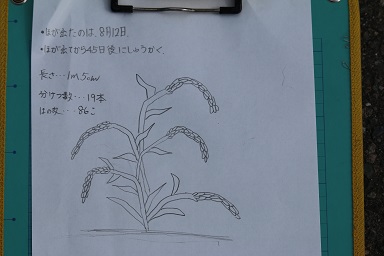 ・ほが出たのは、8月12日.
・ほが出てから45日後にしゅうかく.
長さ…1m5cm
分けつ数…19本
ほの数…86こ